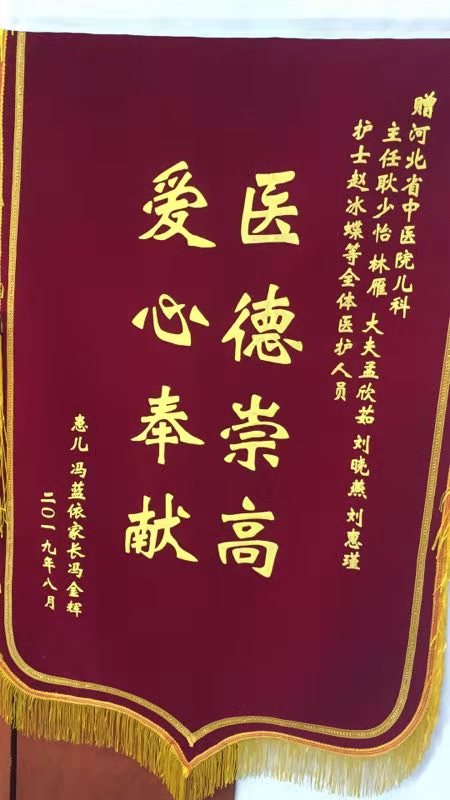 赠河北省中医院儿科
主任耿少怡 林雁 大夫孟欣茹 刘晓燕 刘惠瑾
护士赵冰蝶等全体医护人员
医德崇高
爱心奉献
患儿 冯蓝依家长冯金辉
二〇一九年八月